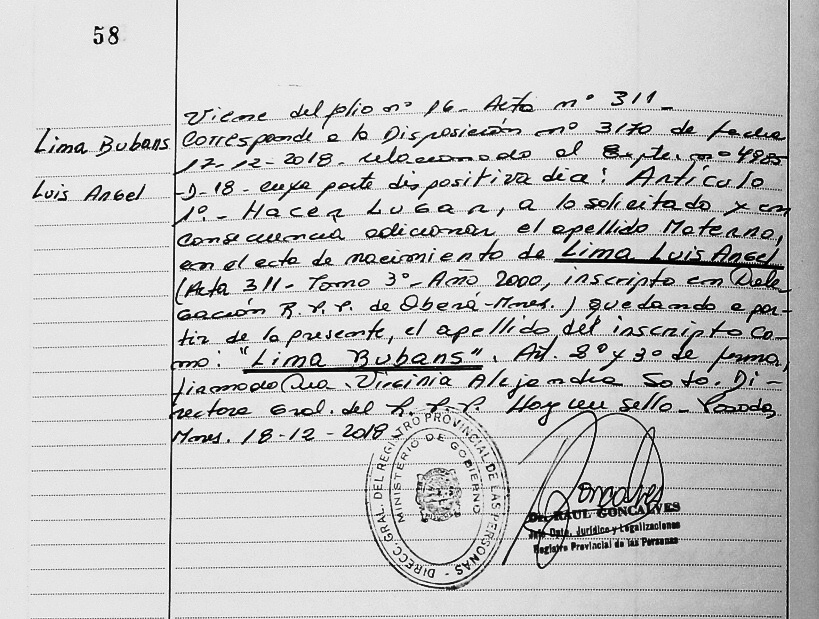 58
Viene del folio nº 16. Acta nº 311_
Lima Bubans
Corresponde a la Disposición nº 3170 de fecha
12-12-2018- relacionado al Expte. nº 4985
Luis Angel
-D-18- cuya parte dispositiva dice: Artículo
1º.- Hacer Lugar, a lo solicitado y en
consecuencia adicionar el apellido Materno,
en el acta de nacimiento de Lima Luis Angel
(Acta 311- Tomo 3º- Año 2000, inscripto en Dele-
gación R.P.P. de Oberá-Mnes.) quedando a par-
tir de la presente, el apellido del inscripto Co-
mo: "Lima Bubans". Art. 2º y 3º de forma,
firmado Dra. Virginia Alejandra Soto. Di-
rectora Gral. del R.P.P. Hay un sello_ Posadas,
Mnes. 18-12-2018
DIRECC. GRAL. DEL REGISTRO PROVINCIAL DE LAS PERSONAS -
MINISTERIO DE GOBIERNO
Goncalves
Dr. RAUL GONCALVES
Jefe Dpto. Jurídico y Legalizaciones
Registro Provincial de las Personas